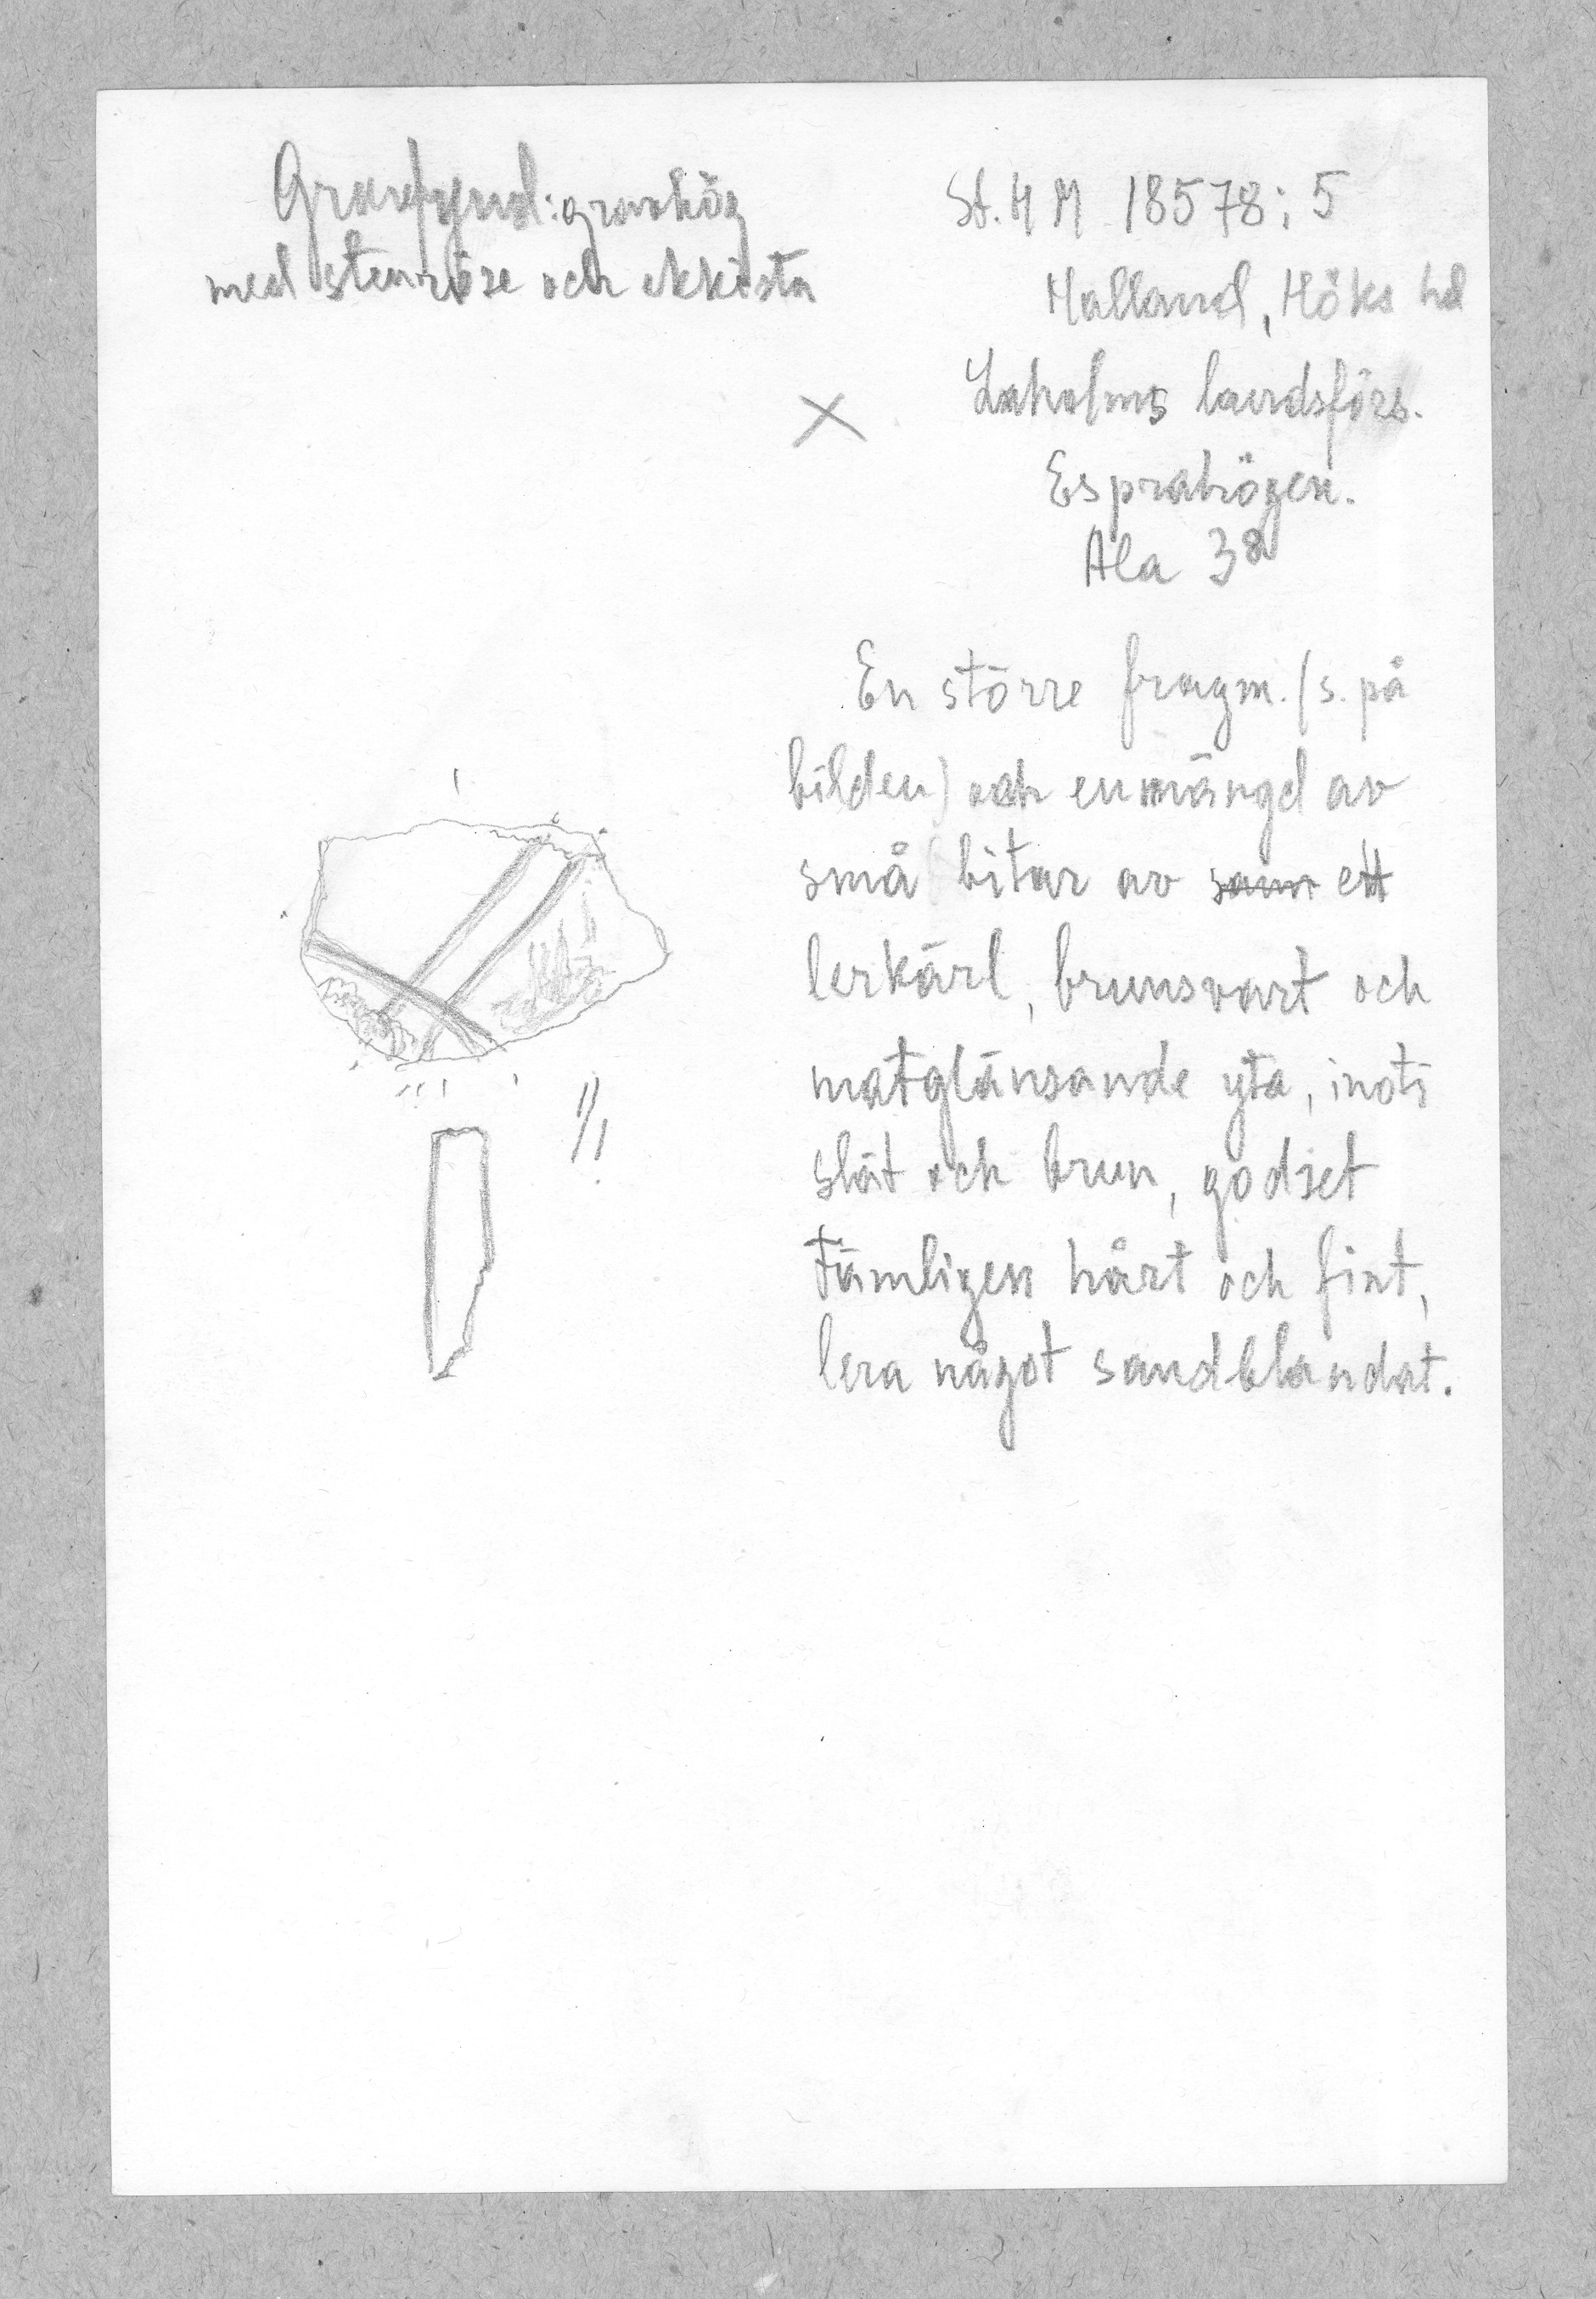 Gravfynd: gravhög
med stenröse och ekkista
St. H M 18578: 5
Halland, Höks hd
Laholms landsförs.
Esprahögen.
Ala 3⁸
En större fragm. (s. på
bilden) och en mängd av
små bitar av ~~sam~~ ett
lerkärl, brunsvart och
matglänsande yta, inoti
slät och brun, godset
tämligen hårt och fint,
lera något sandblandat.
1/1